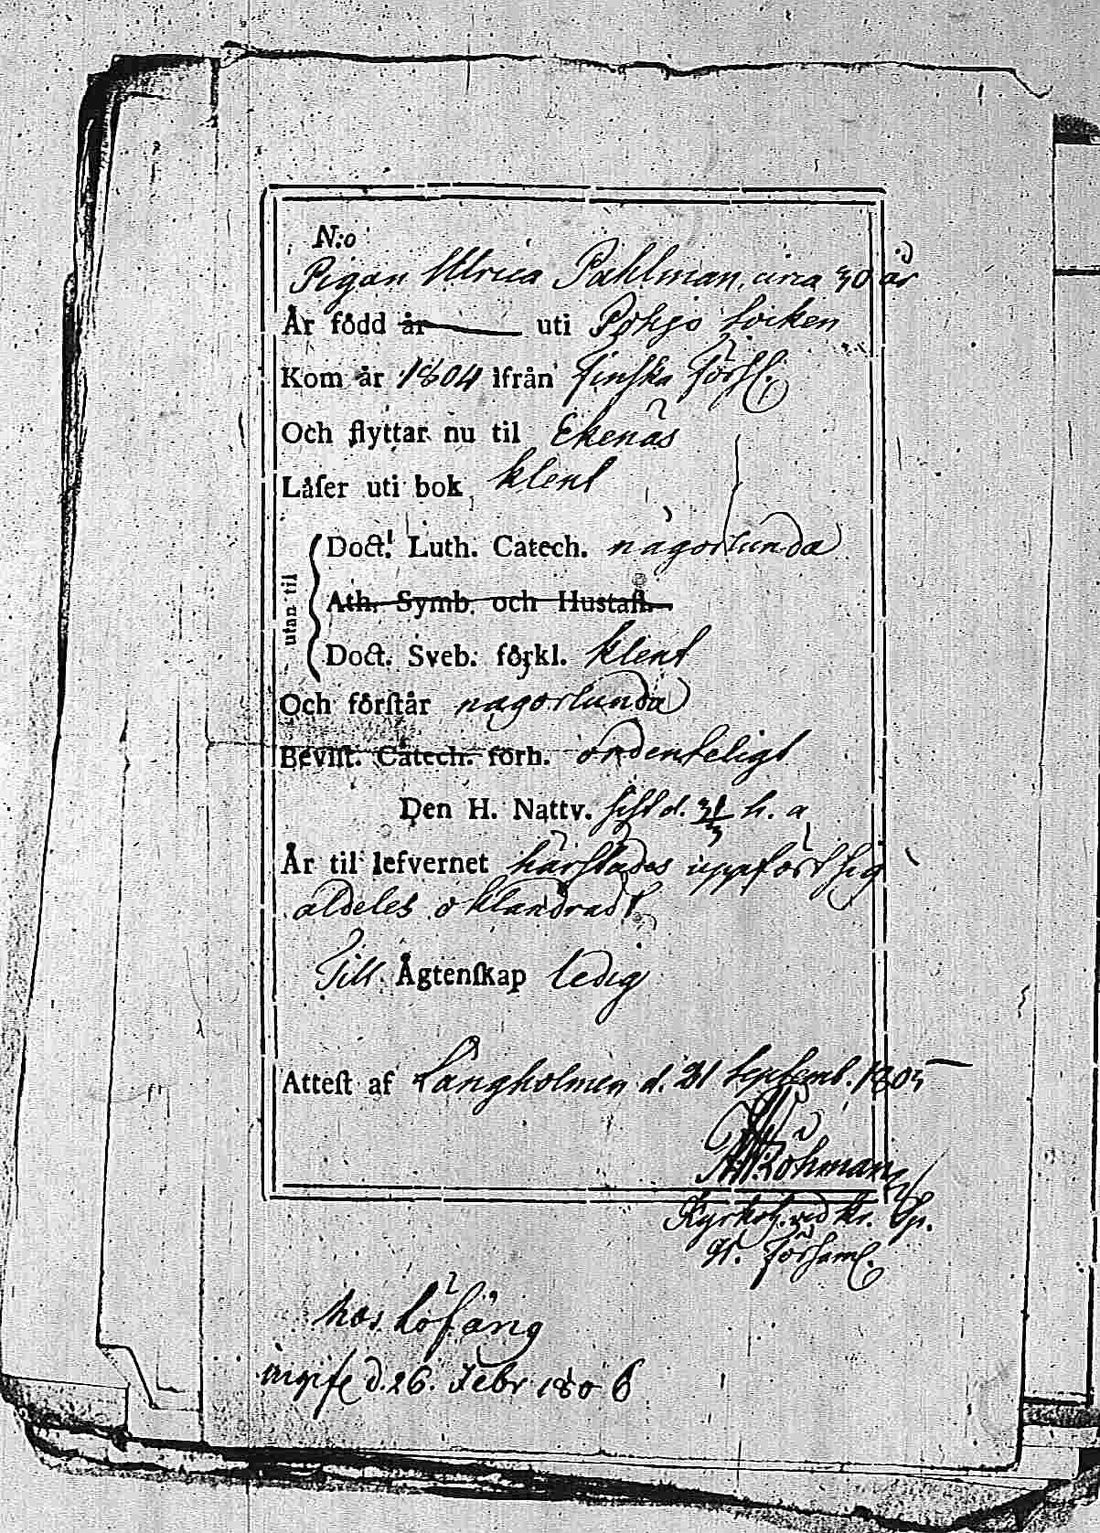 N:o
Pigan Ulrica Pahlman, circa 30 år
Är född år uti Pohjo socken
Kom år 1804 ifrån Finska Förs.
Och flyttar nu til Ekenäs
Låſer uti bok klent
utan til
Doct. Luth. Catech. någorlunda
Ath. Symb. och Huſtafl.
Doct. Sveb. förkl. klent
Och förſtår någorlunda
Beviſt. Catech. förh. ordenteligt
Den H. Nattv. sist d. h. a
Är til lefvernet härstädes uppfört sig
aldeles oklandradt
Till Ägtenſkap ledig
Atteſt af Långholmen d. 21 Septemb. 1805
Röhman
Kyrkoh. ved K. Sp.
H. Församl.
hos Löfäng
ingif. d. 26. Febr 1806